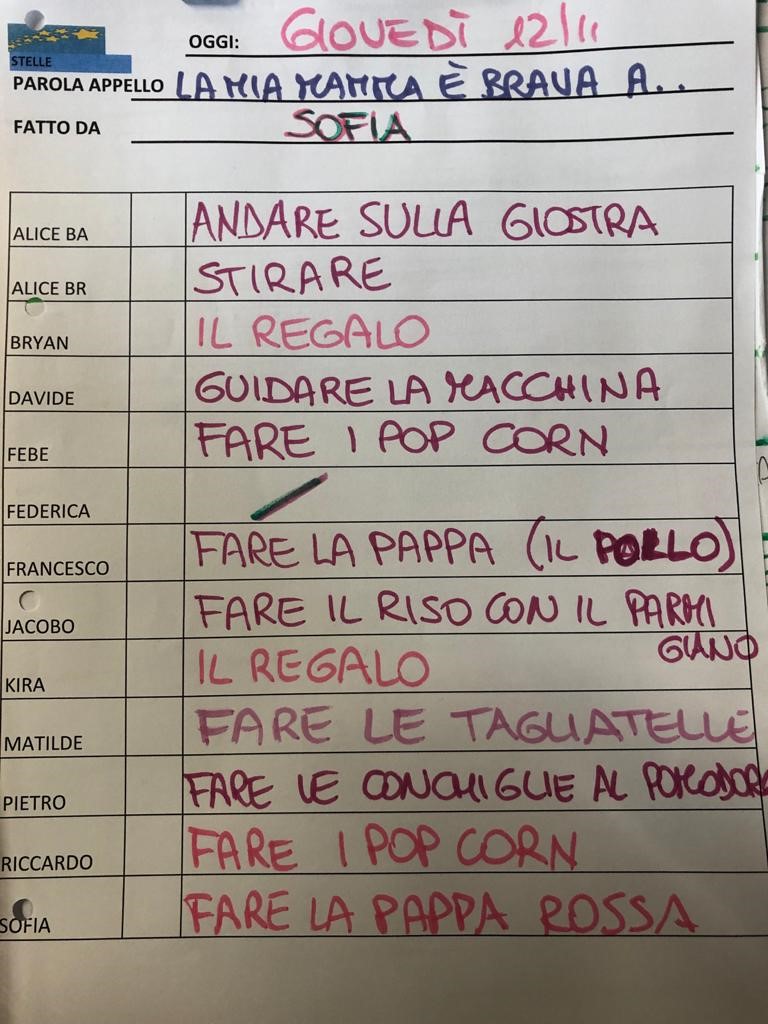 STELLE
OGGI: GIOVEDÌ 12/11
PAROLA APPELLO LA MIA MAMMA È BRAVA A..
FATTO DA SOFIA
ALICE BA ANDARE SULLA GIOSTRA
ALICE BR STIRARE
BRYAN IL REGALO
DAVIDE GUIDARE LA MACCHINA
FEBE FARE I POP CORN
FEDERICA
FRANCESCO FARE LA PAPPA (IL POLLO)
JACOBO FARE IL RISO CON IL PARMI
GIANO
KIRA IL REGALO
MATILDE FARE LE TAGLIATELLE
PIETRO FARE LE CONCHIGLIE AL POMODORO
RICCARDO FARE I POP CORN
SOFIA FARE LA PAPPA ROSSA